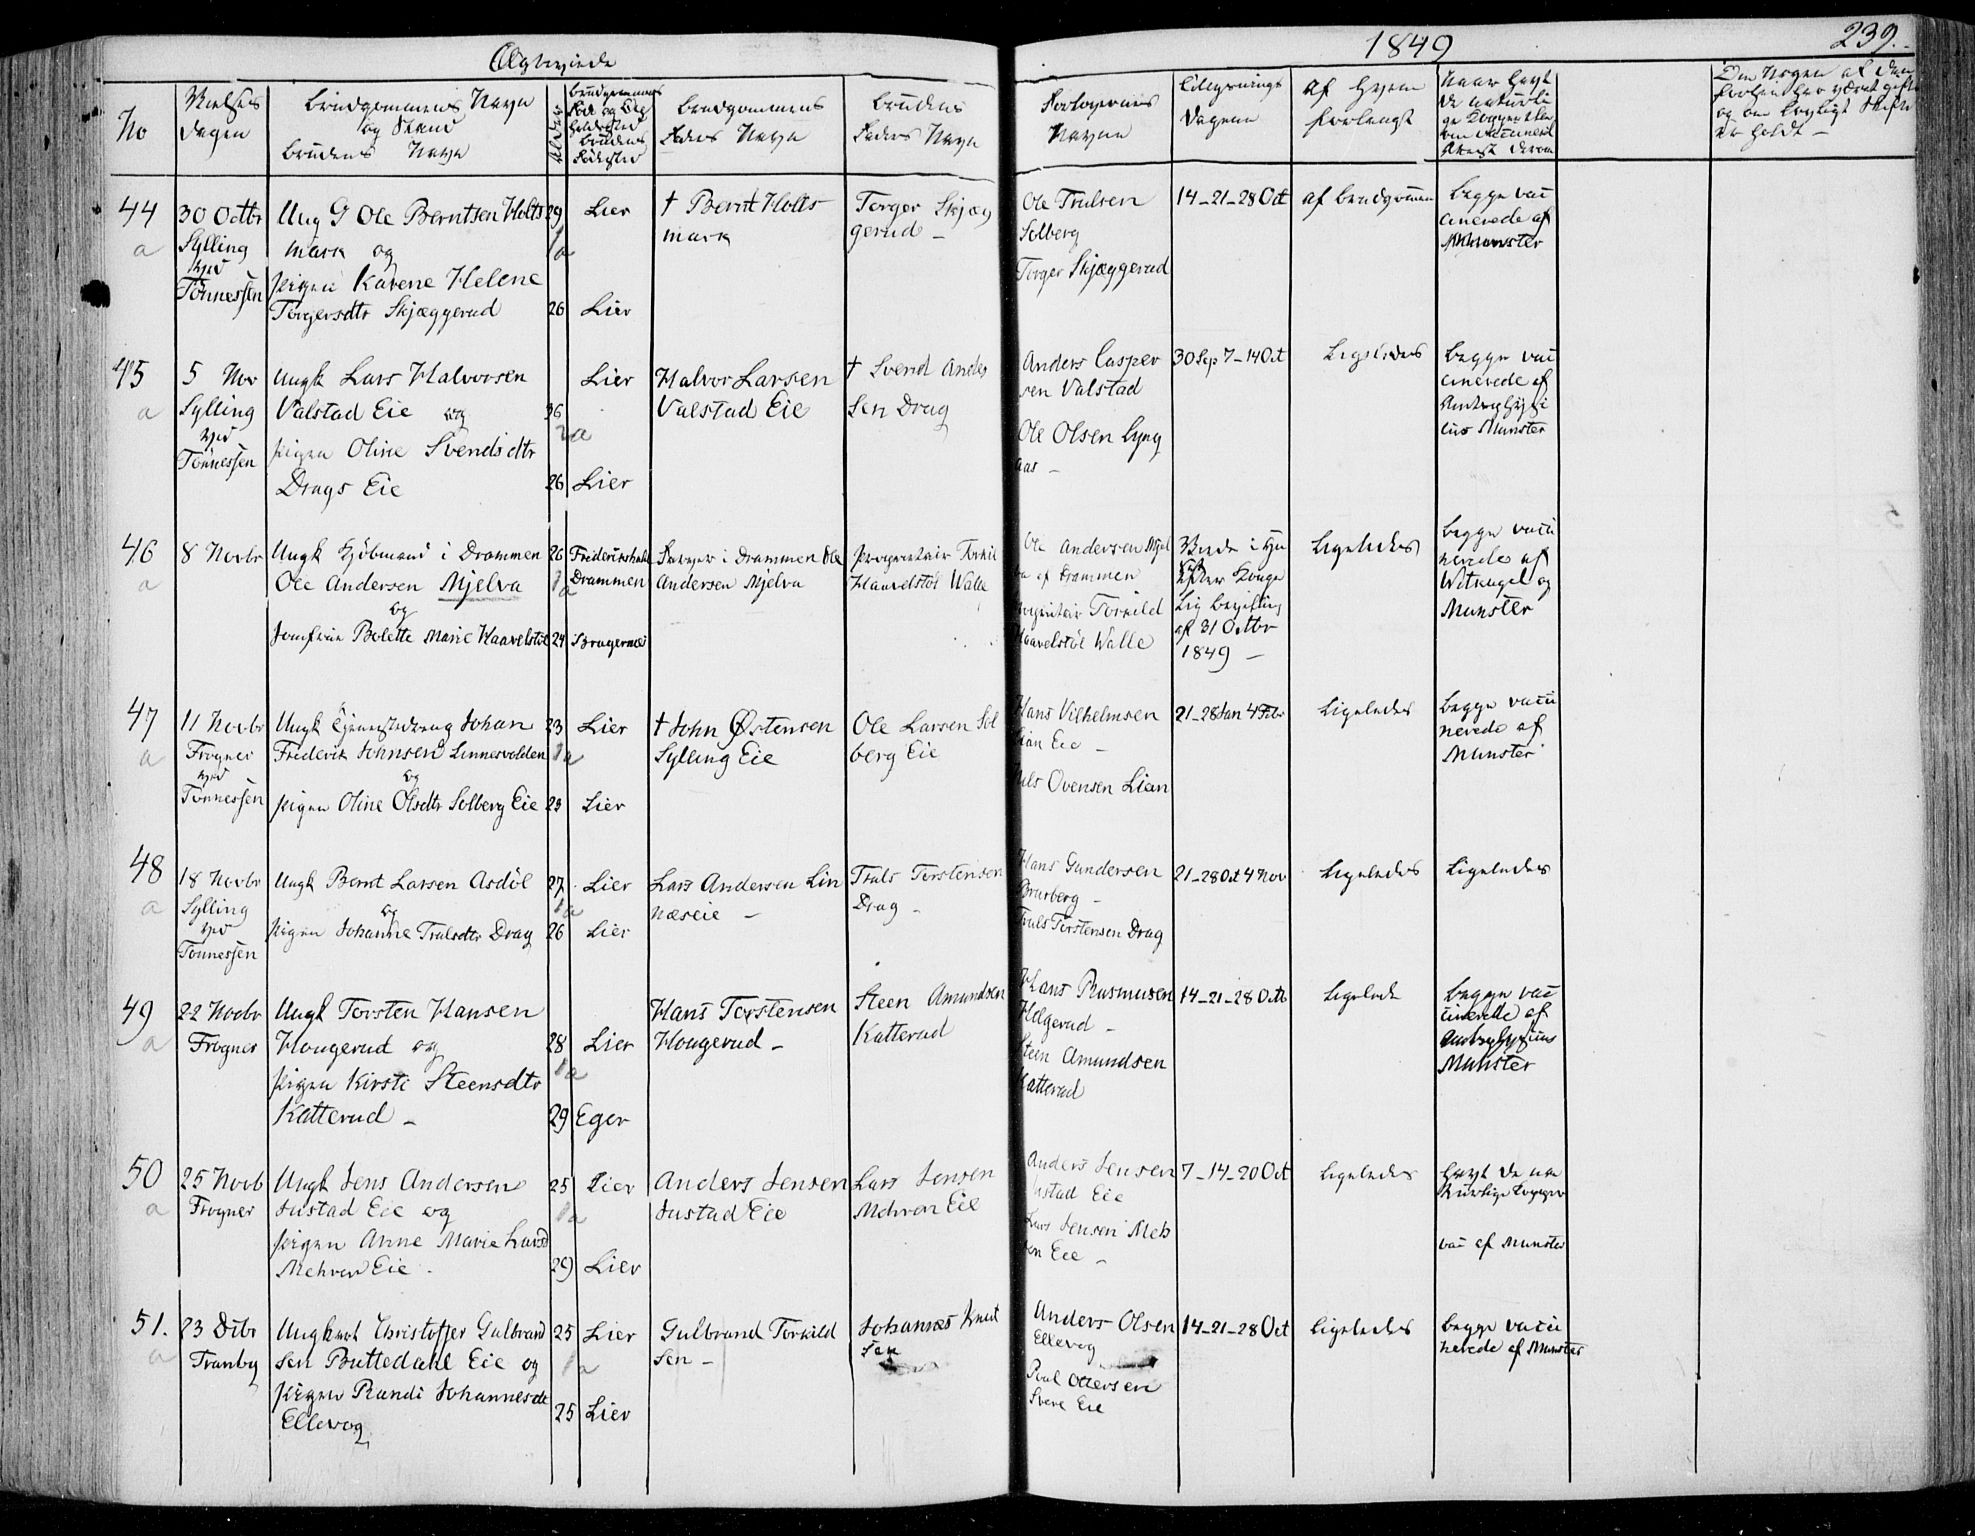 Ægteviede
1849
239.
No
Vielses
Dagen
Brudgommens Navn
og Stand
Brudens Navn
Alder
Brudgommens
Brudens
Fødested
Brudgommens
Faders Navn
Brudens
Faders Navn
Forlovernes
Navne
Tillysnings
Dagene
Af Hvem
forlangt
44
a
30 Octbr
Sylling
ved
Tönnessen
Ung G Ole Berntsen Holts
mark og
Pigen Karene Helene
Torgersdtr Skjæggerud
29
1a
26
Lier
Lier
† Bernt Holts
mark
Torger Skjæg
gerud –
Ole Trulsen
Solberg
Torger Skjæggerud
14-21-28 Oct
af Brudgommen
begge vac
cinerede af
Munster
45
a
5 Nov
Sylling
ved
Tönnessen
Ungk Lars Halvorsen
Valstad Eie og
Pigen Oline Svendsdtr
Drags Eie
36
2a
26
Lier
Lier
Halvor Larsen
Valstad Eie
† Svend Ander
sen Drag
Anders Casper
sen Valstad
Ole Olsen Lyng
aas –
30 Sep 7-14 Oct
Ligeledes
begge vac
cinerede af
Munster
46
a
8 Novbr
Ungk Kjöbmand i Drammen
Ole Andersen Mjelva
og
Jomfrue Bolette Marie Haavelstöl
26
1a
24
Frederikshald
Drammen
Bragernæs
i Drammen Ole
Andersen Mjelva
Proprietair Torkil
Haavelstöl Walle
Ole Andersen Mjel
va af Drammen
Proprietair Torkild
Haavelstöl Walle
Viede i Hu
set efter Konge
lig Bevilling
af 31 Octbr
1849 –
Ligeledes
begge vacci
nerede af
Munster
47
a
11 Novbr
Frogner
ved
Tönnessen
Ungk Tjenestedreng Johan
Frederik Johnsen Linnesvolden
og
Pigen Oline Olsdtr Solberg Eie
23
1a
23
Lier
Lier
† John Østensen
Sylling Eie
Ole Larsen Sol
berg Eie
Hans Vilhelmsen
Lian Eie –
Nils Ovensen Lian
21-28 Jan 4 Febr
Ligeledes
begge vacci
nerede af
Munster
48
a
18 Novbr
Sylling
ved
Tönnessen
Ungk Bernt Larsen Asdöl
og
Pigen Johanne Trulsdtr Drag
27
1a
26
Lier
Lier
Lars Andersen Lin
næseie –
Truls Torstensen
Drag –
Hans Gundersen
Brurberg –
Truls Torstensen Drag
21-28 Oct 4 Nov
Ligeledes
Ligeledes
49
a
22 Novbr
Frogner
Ungk Torsten Hansen
Hougerud og
Pigen Kirsti Steensdtr
Katterud –
28
1a
29
Lier
Eger
Hans Torstensen
Hougerud –
Steen Amundsen
Katterud
Hans Rasmusen
Helgerud –
Steen Amundsen
Katterud
14-21-28 Octb
Ligelede
begge vac
cinerede af
Munster
50
a
25 Novb
Frogner
Ungk Jens Andersen
Justad Eie og
Pigen Anne Marie Larsd
Mehren Eie –
25
1a
29
Lier
Lier
Anders Jensen
Justad Eie
Lars Jensen
Mehren Eie
Anders Jensen
Justad Eie
Lars Jensen Meh
ren Eie –
7-14-20 Oct
Ligeledes
havt de na
turlige Kopper
vac af Munster
51.
a
23 Dcbr
Tranby
Ungkarl Christoffer Gulbrand
sen Buttedahl Eie og
Pigen Randi Johannesdt
Ellevog
25
1a
25
Lier
Lier
Gulbrand Torkild
sen –
Johannes Knut
sen
Anders Olsen
Ellevog
Poul Ottersen
Svere Eie
14-21-28 Oct
Ligeledes
begge vacci
nerede af Munster